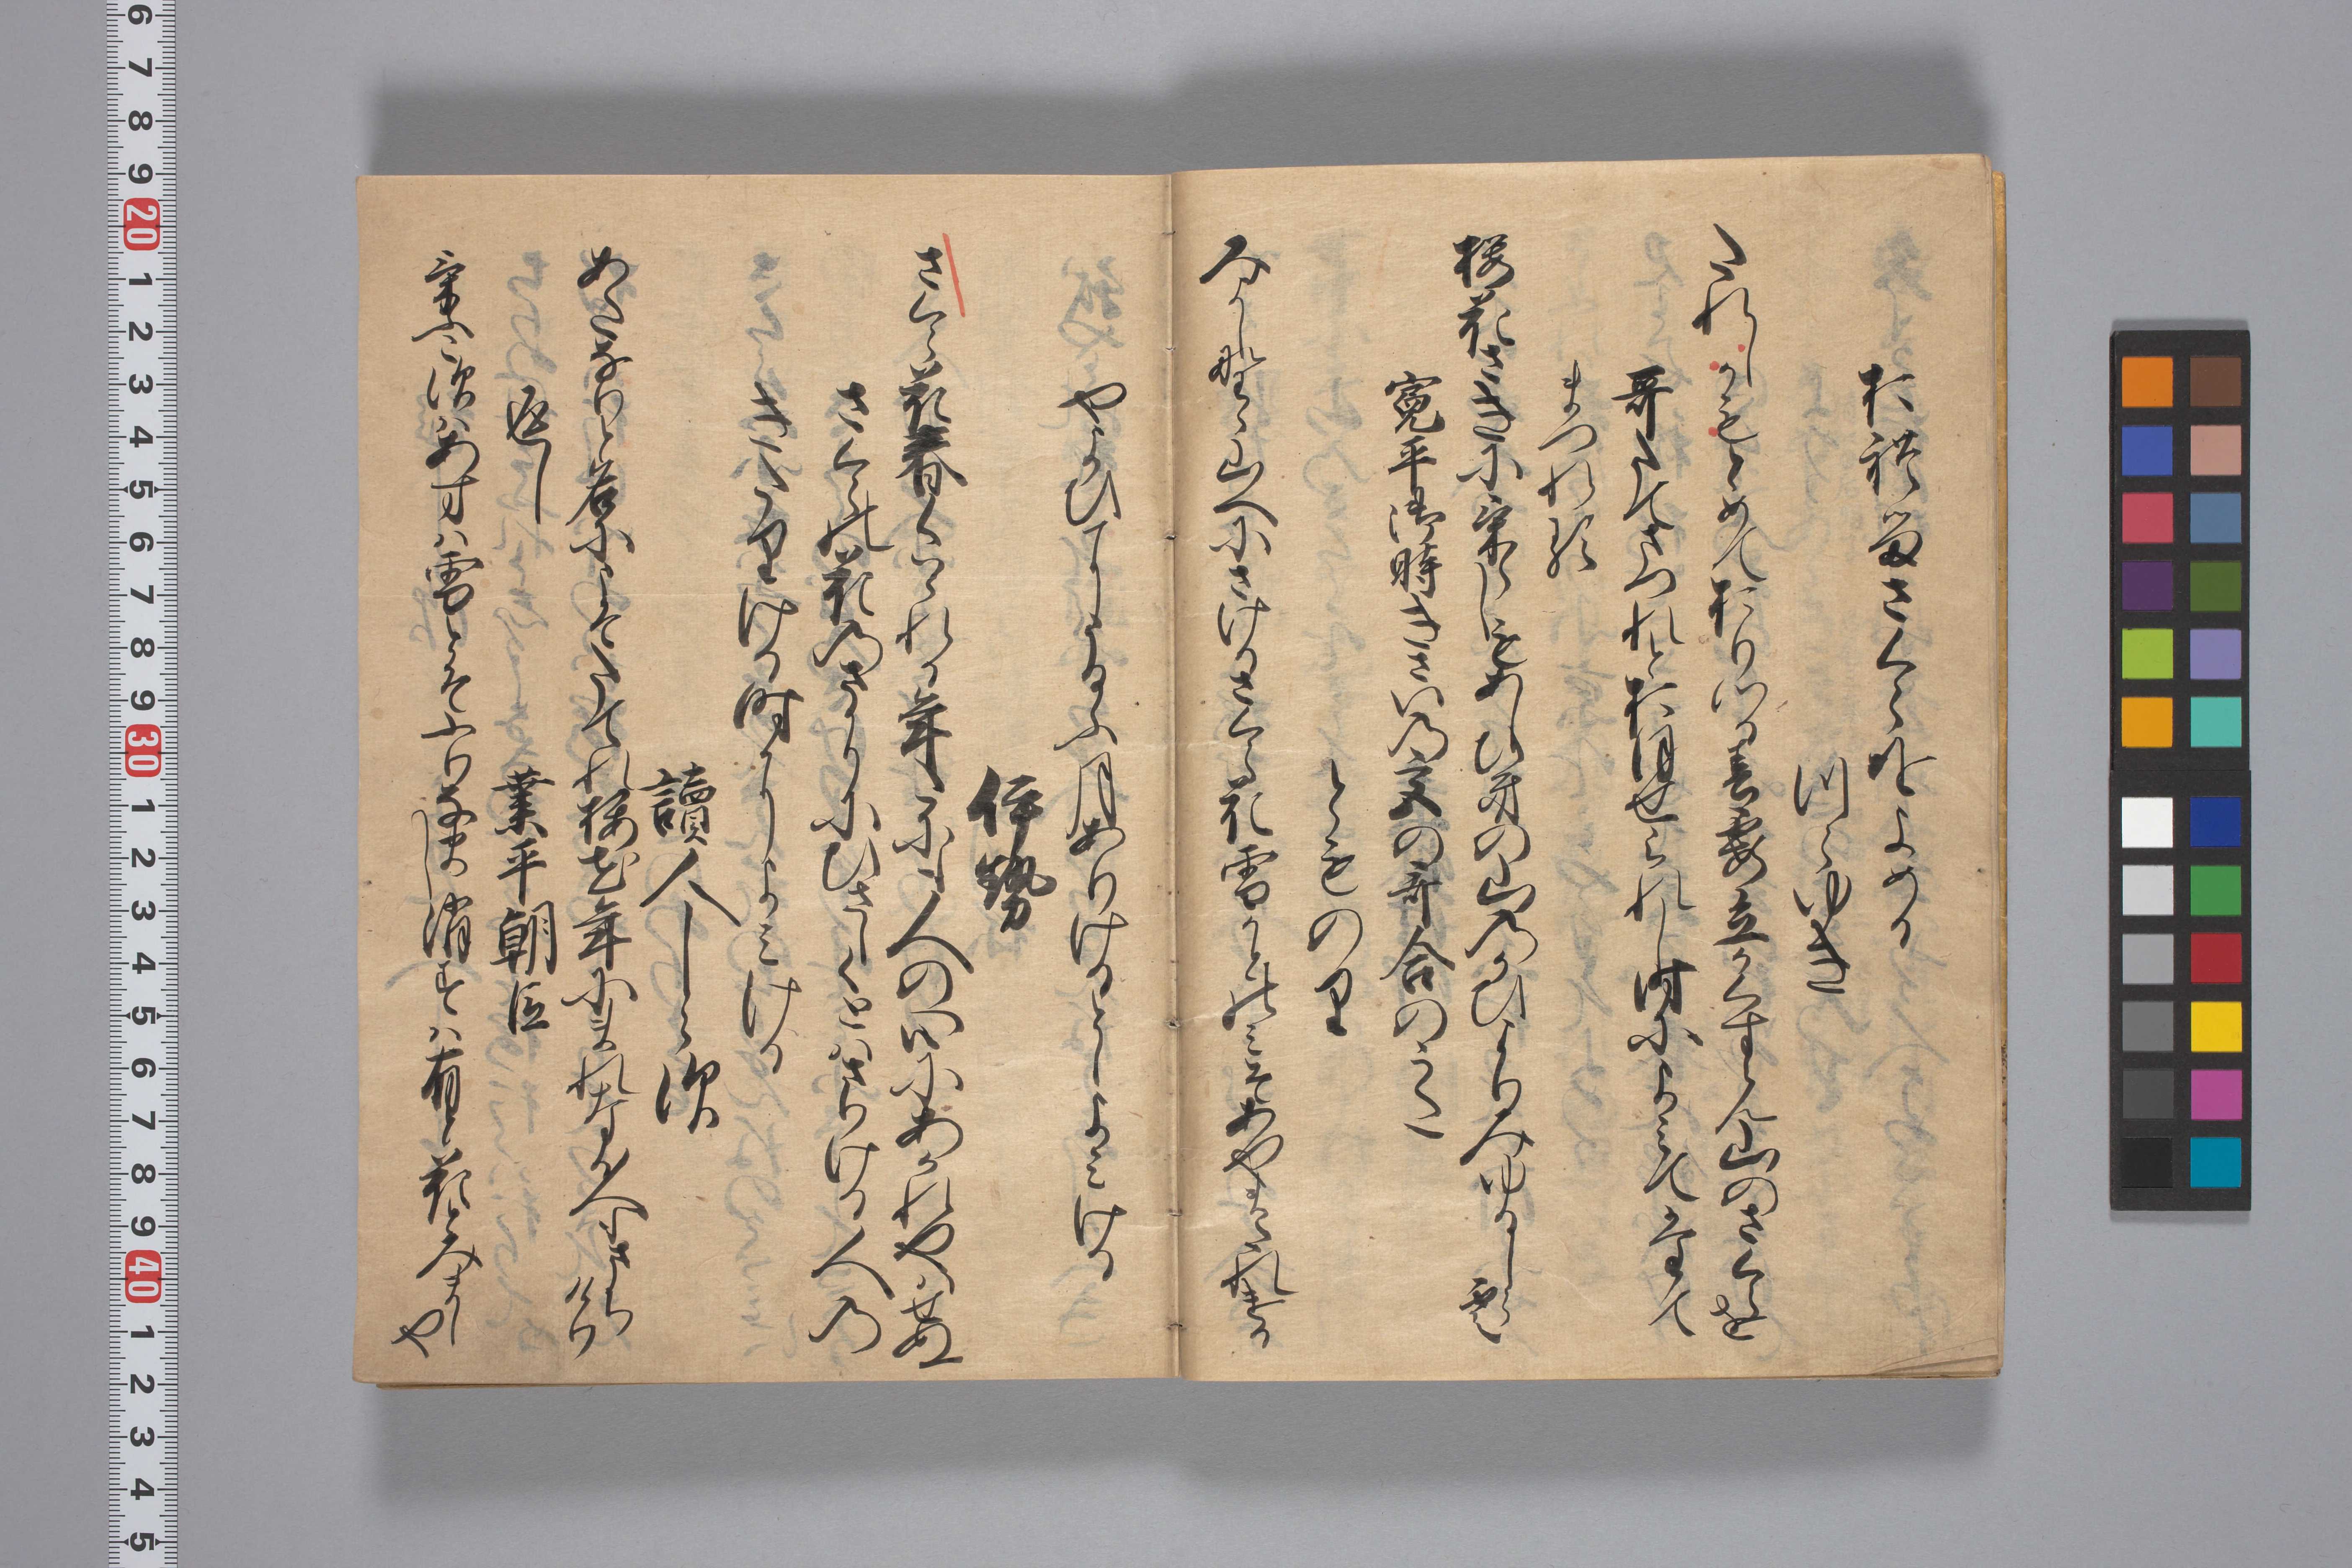 おれるさくらをよめる
つらゆき
たれしかもとめておりつる春霞立かくすらん山のさくらを
哥たてまつれとおほせられし時によみてたて
まつれる
桜花さきに家らしもあしひきの山乃かひよりみゆるしら雲
寛平御時きさいの宮の哥合のうた
とものり
みよし野ゝ山へにさけるさくら花雪かとのみそあやまたれける
やよひにうるふ月ありけるとしよみける
伊勢
さくら花春くはゝれる年たにも人の心にあかれやはせぬ
さくらの花のさかりにひさしくとはさりける人の
きたりける時によみける
讀人しらす
あたなりと名にこそたてれ桜花年にまれなる人もまちけり
返し
業平朝臣
けふこすはあすは雪とそふりなまし消すは有とも花とみましや